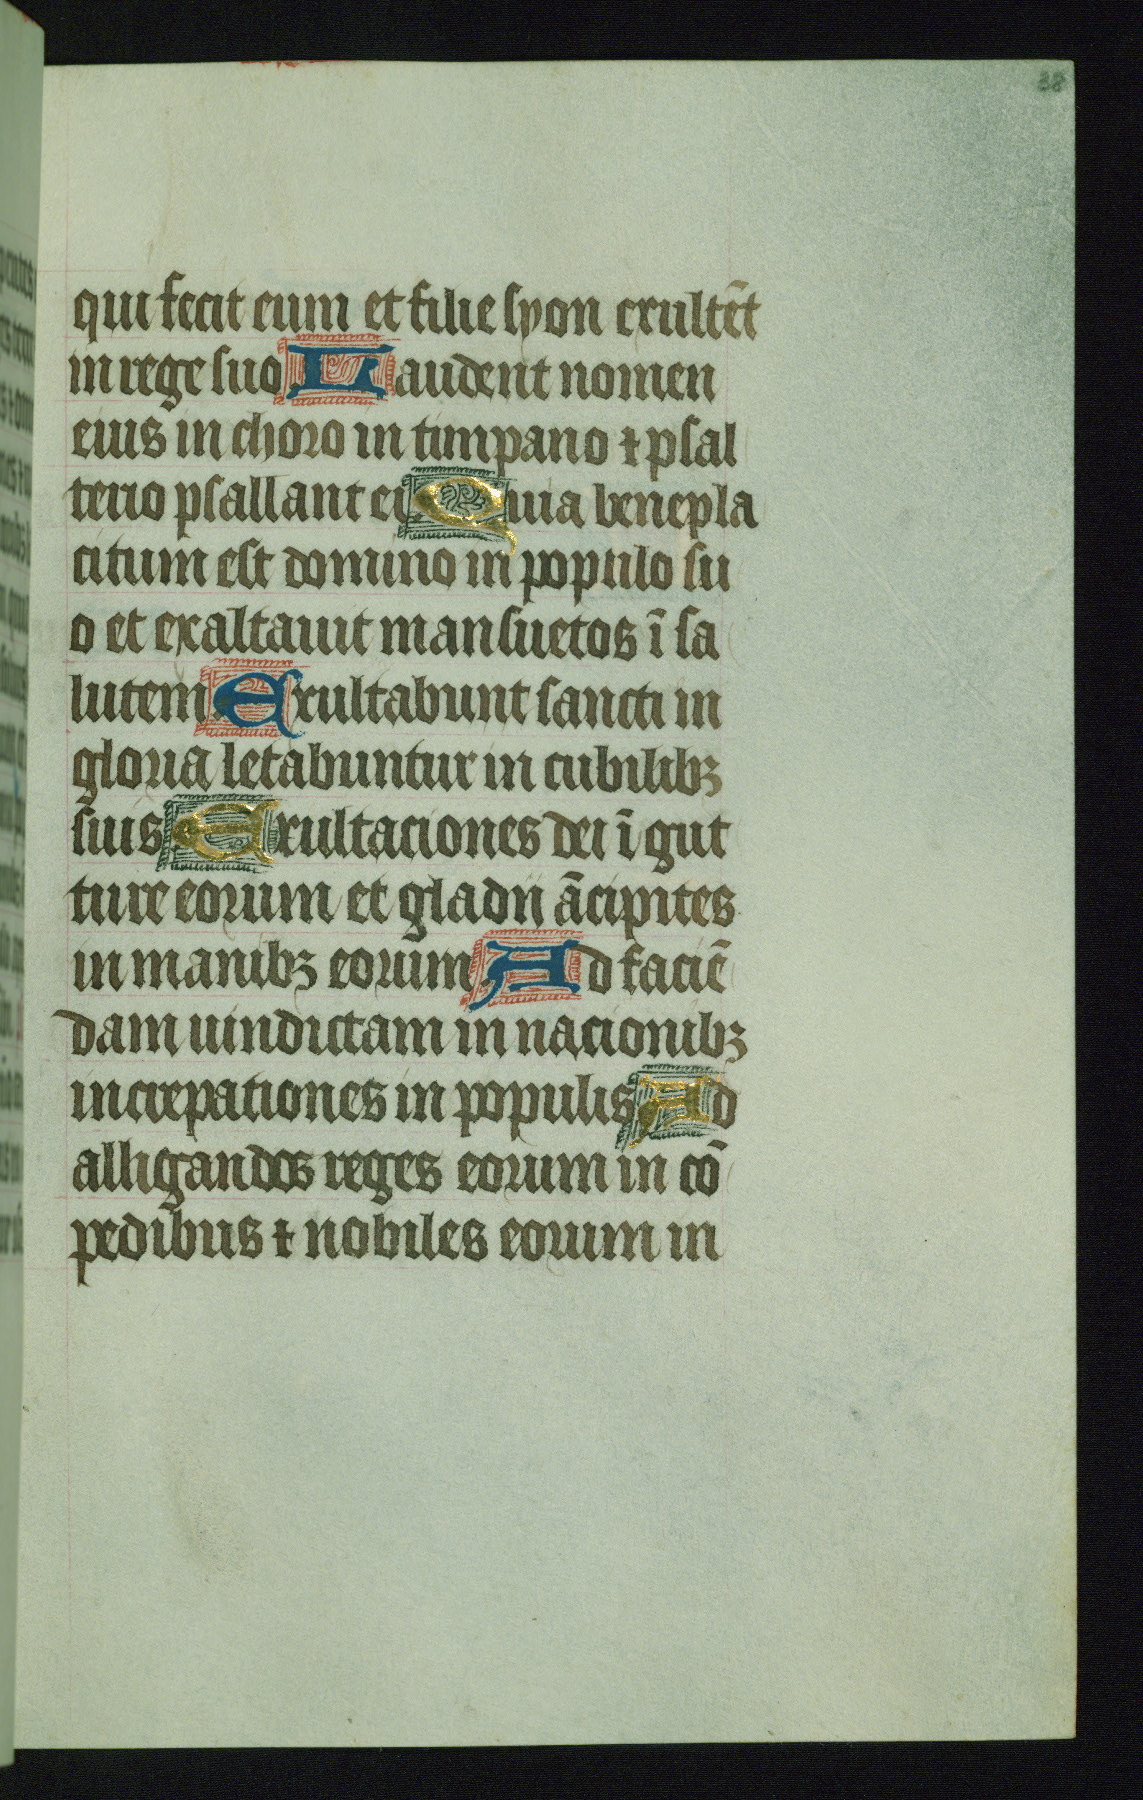 38
qui fecit eum et filie syon exultēt
in rege suo Laudent nomen
eius in choro in timpano ⁊ psal
terio psallant ei Quia benepla
citum est domino in populo su
o et exaltauit mansuetos ī sa
lutem Exultabunt sancti in
gloria letabuntur in cubilibꝫ
suis Exultaciones dei ī gut
ture eorum et gladij ācipites
in manibꝫ eorum Ad faciē
dam uindictam in nacionibꝫ
increpationes in populis Ad
alligandos reges eorum in cō
pedibus ⁊ nobiles eorum in